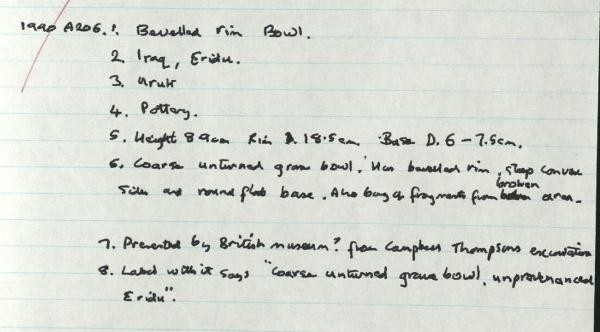 1990 A206. 1. Bevelled rim Bowl.
2. Iraq, Eridu.
3. Uruk
4. Pottery.
5. Height 8.9cm Rim D. 18.5cm. Base D. 6 - 7.5cm.
6. Coarse unturned grave bowl. Has bevelled rim, steep convex
sides and round flat base. Also bag of fragments from broken area.
7. Presented by British Museum? from Campbell Thompsons excavations
8. Label with it says "Coarse unturned grave bowl, unprovenanced
Eridu".